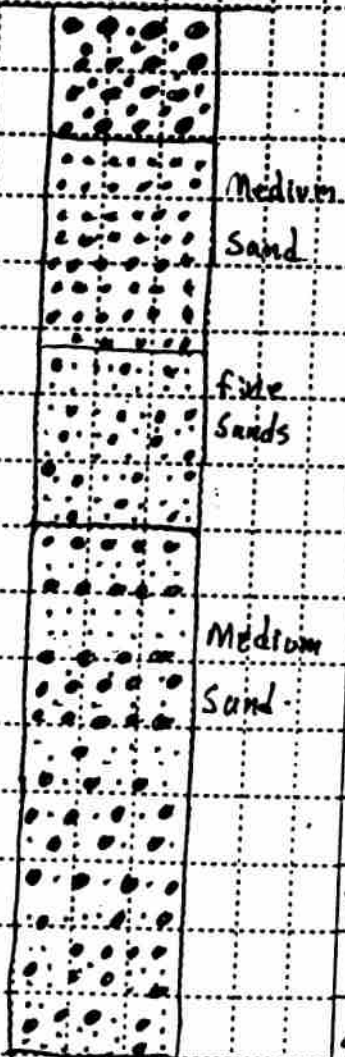 Medium
Sand
fine
Sands
Medium
Sand.